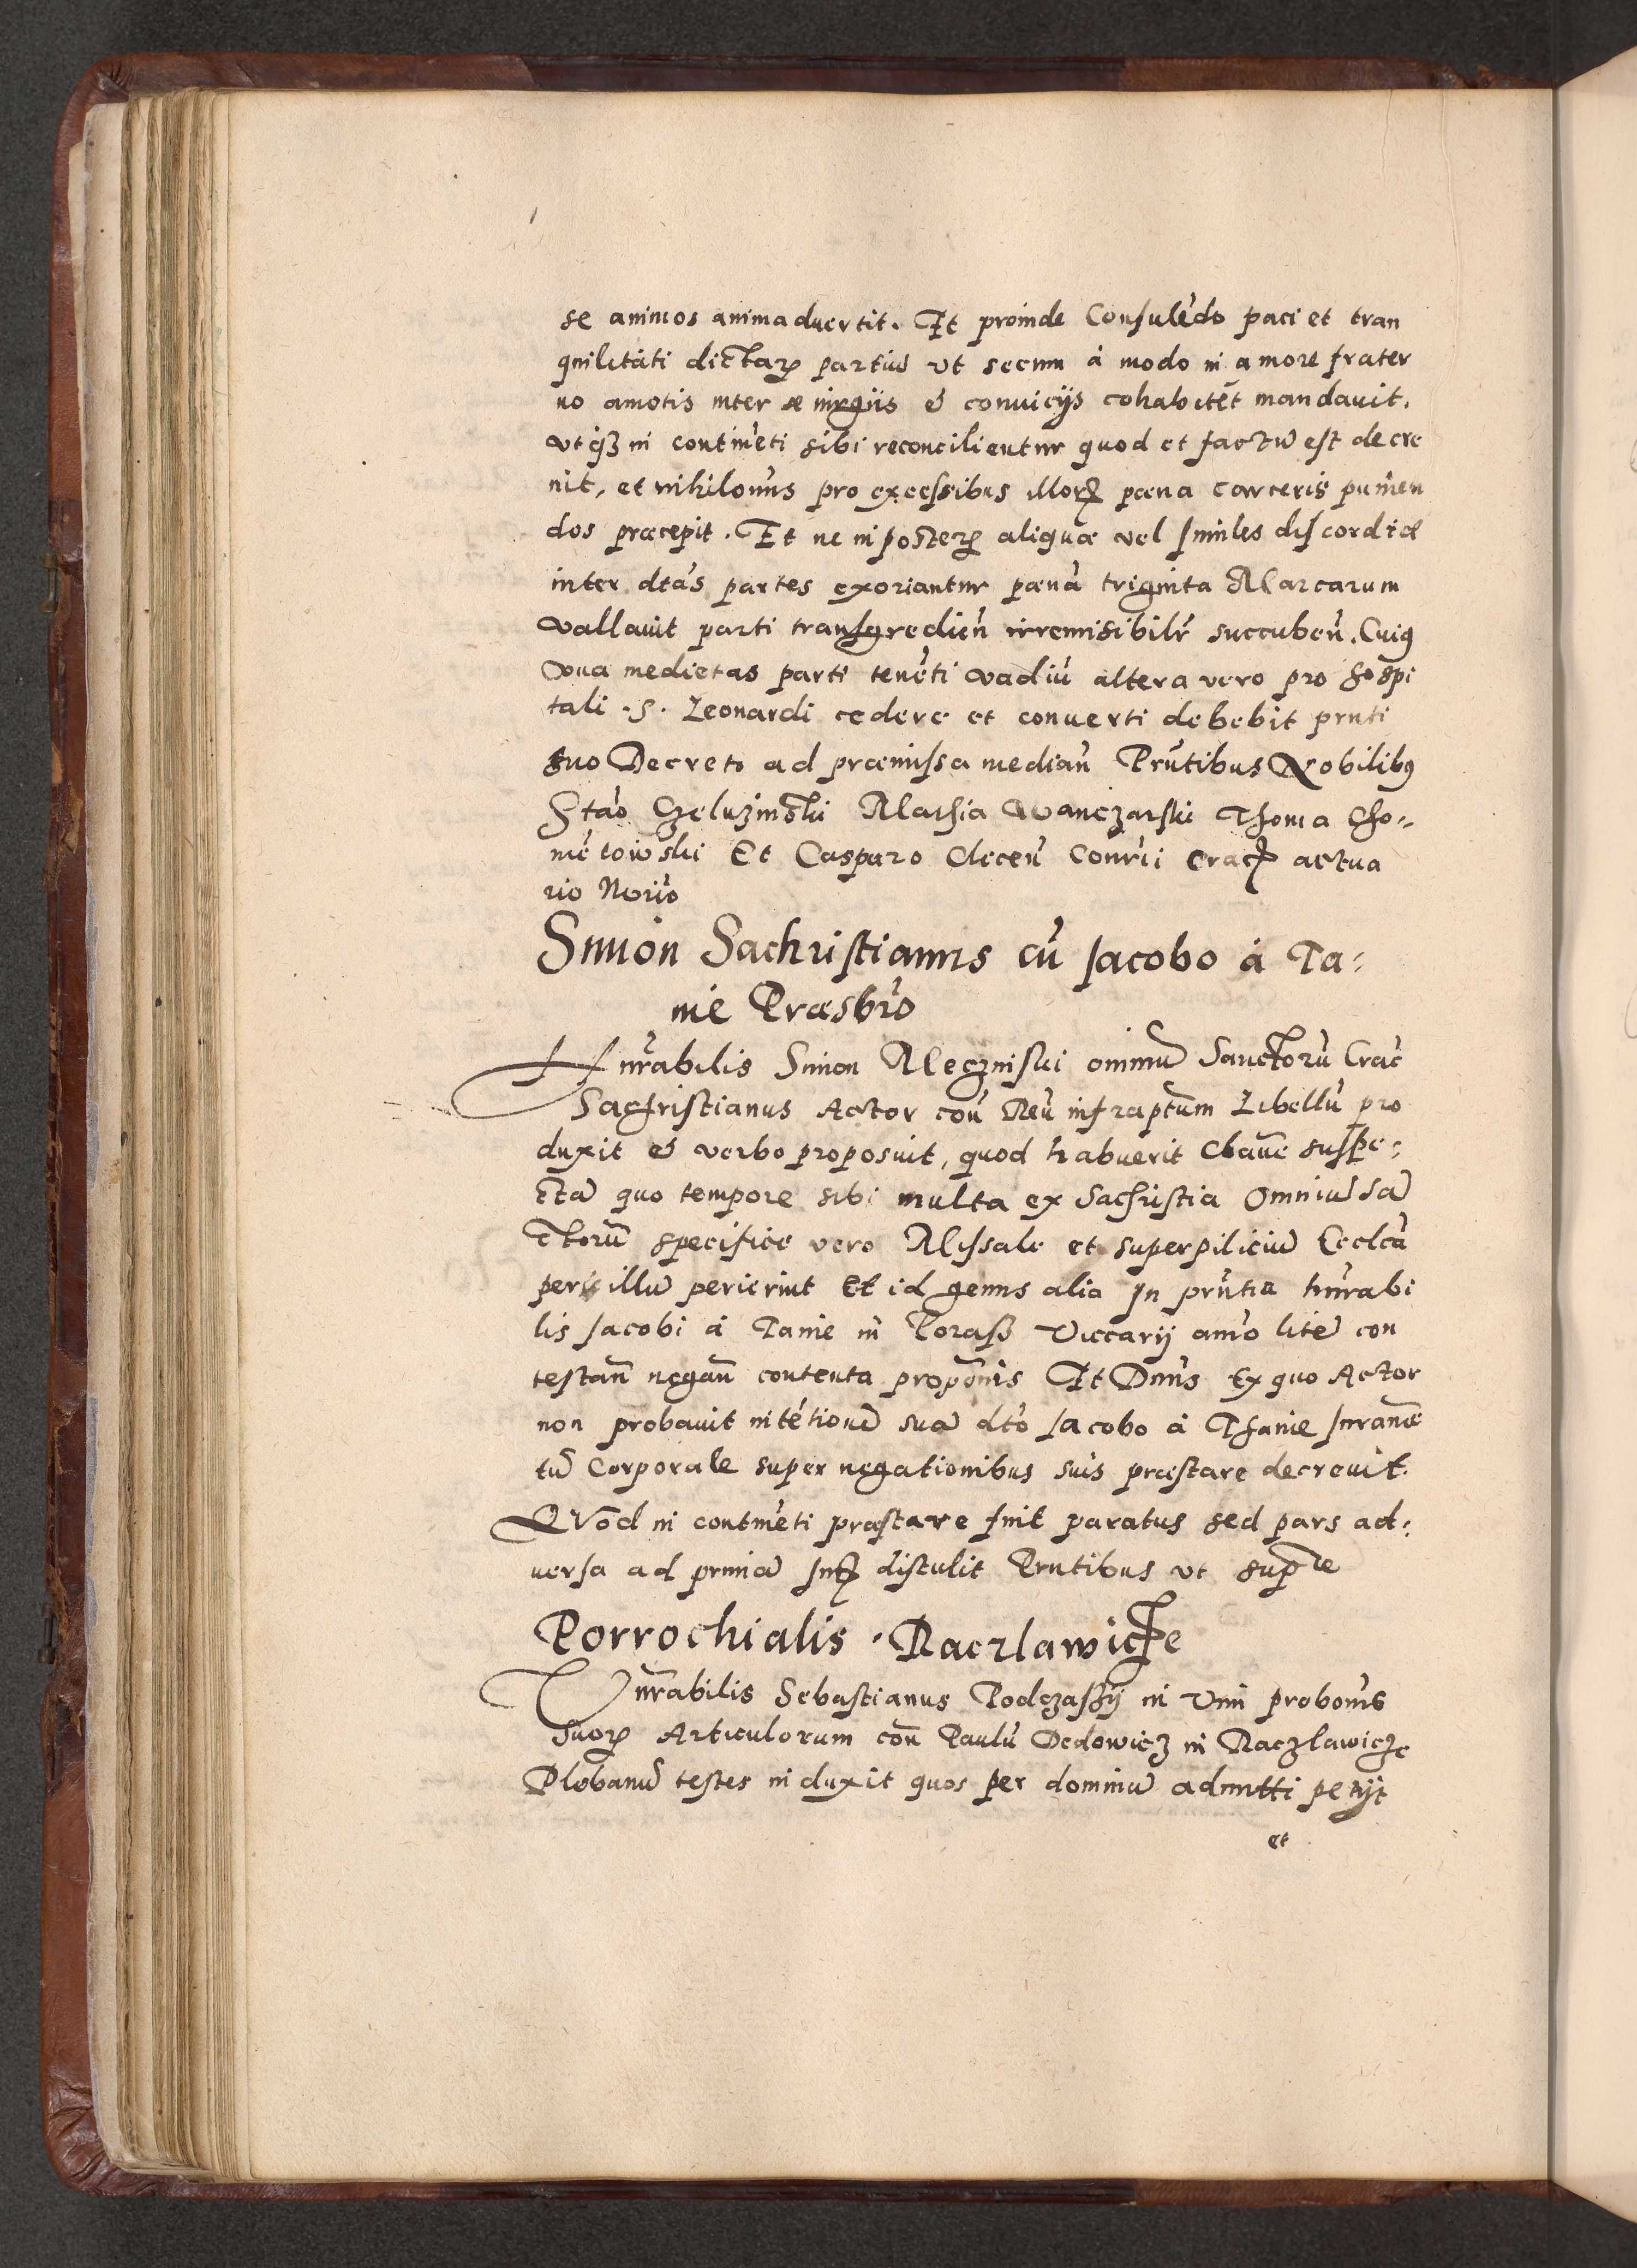 se animos animaduertit. Et proinde Consulēdo paci et tran
quilitati dictarꝝ partiū ut secum à modo in amore frater
no amotis inter se iurgiis & conuicijs cohabitēt mandauit,
utqꝫ in continēti sibi reconcilientur quod et factū est decre
uit, et nihilomīs pro excessibus illorꝝ pœna carceris punien
dos præcepit. Et ne in posterꝝ aliquæ vel similes discordiæ
inter dtās partes exoriantur pœnā triginta Marcarum
vallauit parti transgredien̄ irremisibilr̄ succuben̄. Cuiꝰ
vna medietas parti tenēti vadiū altera vero pro hospi
tali .S. Leonardi cedere et conuerti debebit prnti
suo Decreto ad præmissa median̄ Prn̄tibus Nobilibꝰ
Stāo Czeluzinski Mathia Wanczarski Thoma Cho=
metowski Et Casparo Clecen̄ Conrīi Cracꝝ actua
rio Norio
Simon Sachristianus cū Jacobo à Ta=
nie Præsbrō
Hnrābilis Simon Meczinski omniū Sanctorū Crac̄
Sachristianus Actor con̄ Reū infraptum Libellū pro
duxit & verbo proposuit, quod habuerit Clauē suspe=
ctā quo tempore sibi multa ex Sachristia Omniū Sā
ctorū specifice vero Missale et superpiliciū Ecclā
per illū perierint Et id genus alia In prn̄tia hnrābi
lis Jacobi à Tanie in Poraß Viccarij anīo litē con
testan̄ negan̄ contenta propōnis Et Dnūs Ex quo Actor
non probauit intētionē suā dtō Jacobo à Thanie Iuramē
tū Corporale super negationibus suis præstare decreuit.
Quōd in continēti præstare fuit paratus sed pars ad=
uersa ad primā Jurꝝ distulit Prntibus ut supra
Porrochialis . Raczlawicze
Vnrābilis Sebastianus Podczaski in Vim probōnis
suorꝝ Articulorum con̄ Paulū Dedowicz in Raczlawicze
Plebanū testes induxit quos per dominū admitti petijt
et